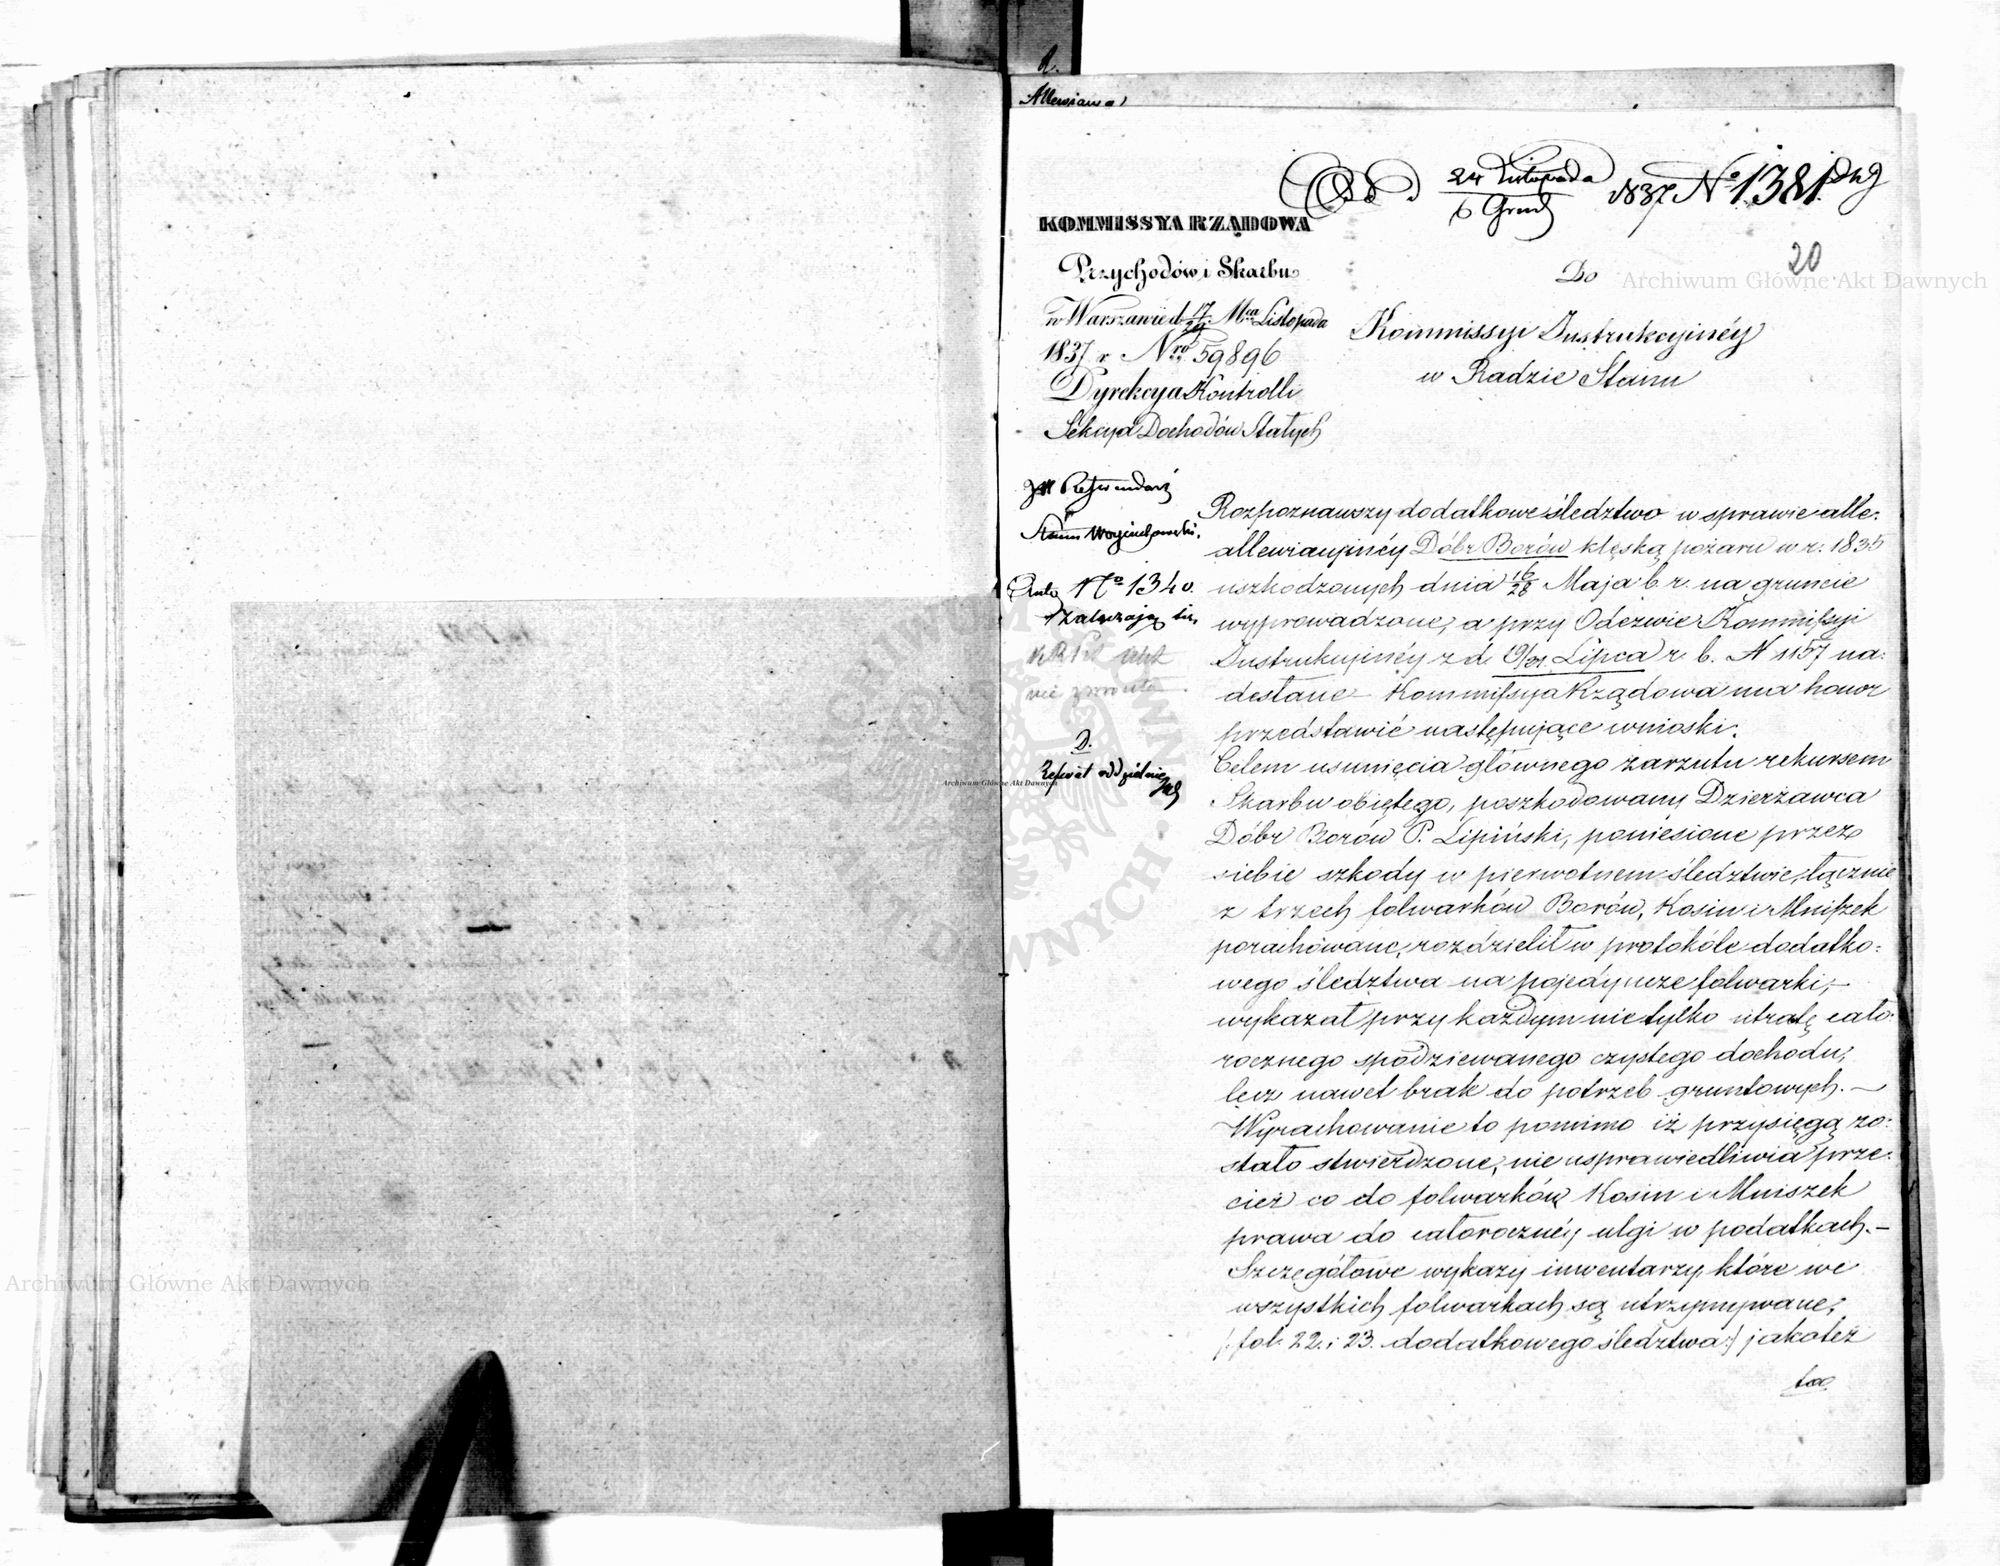 Allewiana
24 Listopada
6 Grud 1837 No 1381
20
KOMMISSYA RZĄDOWA
Przychodów i Skarbu
w Warszawie d. 17/29 Mca Listopada
1837 r. Nro 59896
Dyrekcya Kontrolli
Sekcya Dochodów Stałych
Do
Kommissyi Instrukcyinéy
w Radzie Stanu
JW Referendarz
Stanu Woyciechowski.
Akta No 1340.
załączają się,
nie
D.
Referat oddzielnie
Rozpoznawszy dodatkowe śledztwo w sprawie alle:
allewiacyinéy Dóbr Borów klęską pożaru w r. 1835
uszkodzonych dnia 16/28 Maja b. r. na gruncie
wyprowadzone, a przy Odezwie Kommissyi
Instrukcyinéy z d. 19/31 Lipca r. b. N 1157 na:
desłane Kommissya Rządowa ma honor
przedstawić następujące wnioski.
Celem usunięcia głównego zarzutu rekursem
Skarbu obiętego, poszkodowany Dzierżawca
Dóbr Borów P. Lipiński, poniesione przez
siebie szkody w pierwotnem śledztwie, łącznie
z trzech folwarków Borów, Kosin i Mniszek
porachowane, rozdzielił w protokóle dodatko:
wego śledztwa na pojedyncze folwarki,
wykazał przy każdym nie tylko utratę cało:
rocznego spodziewanego czystego dochodu,
lecz nawet brak do potrzeb gruntowych. —
Wyrachowanie to pomimo iż przysięgą zo:
stało stwierdzone, nie usprawiedliwia prze:
cież co do folwarków Kosin i Mniszek
prawa do całorocznéy ulgi w podatkach. —
Szczegółowe wykazy inwentarzy, które we
wszystkich folwarkach są utrzymywane,
/: fol. 22. i 23. dodatkowego śledztwa :/ jakoteż
Archiwum Główne Akt Dawnych
Archiwum Główne Akt Dawnych
Archiwum Główne Akt Dawnych